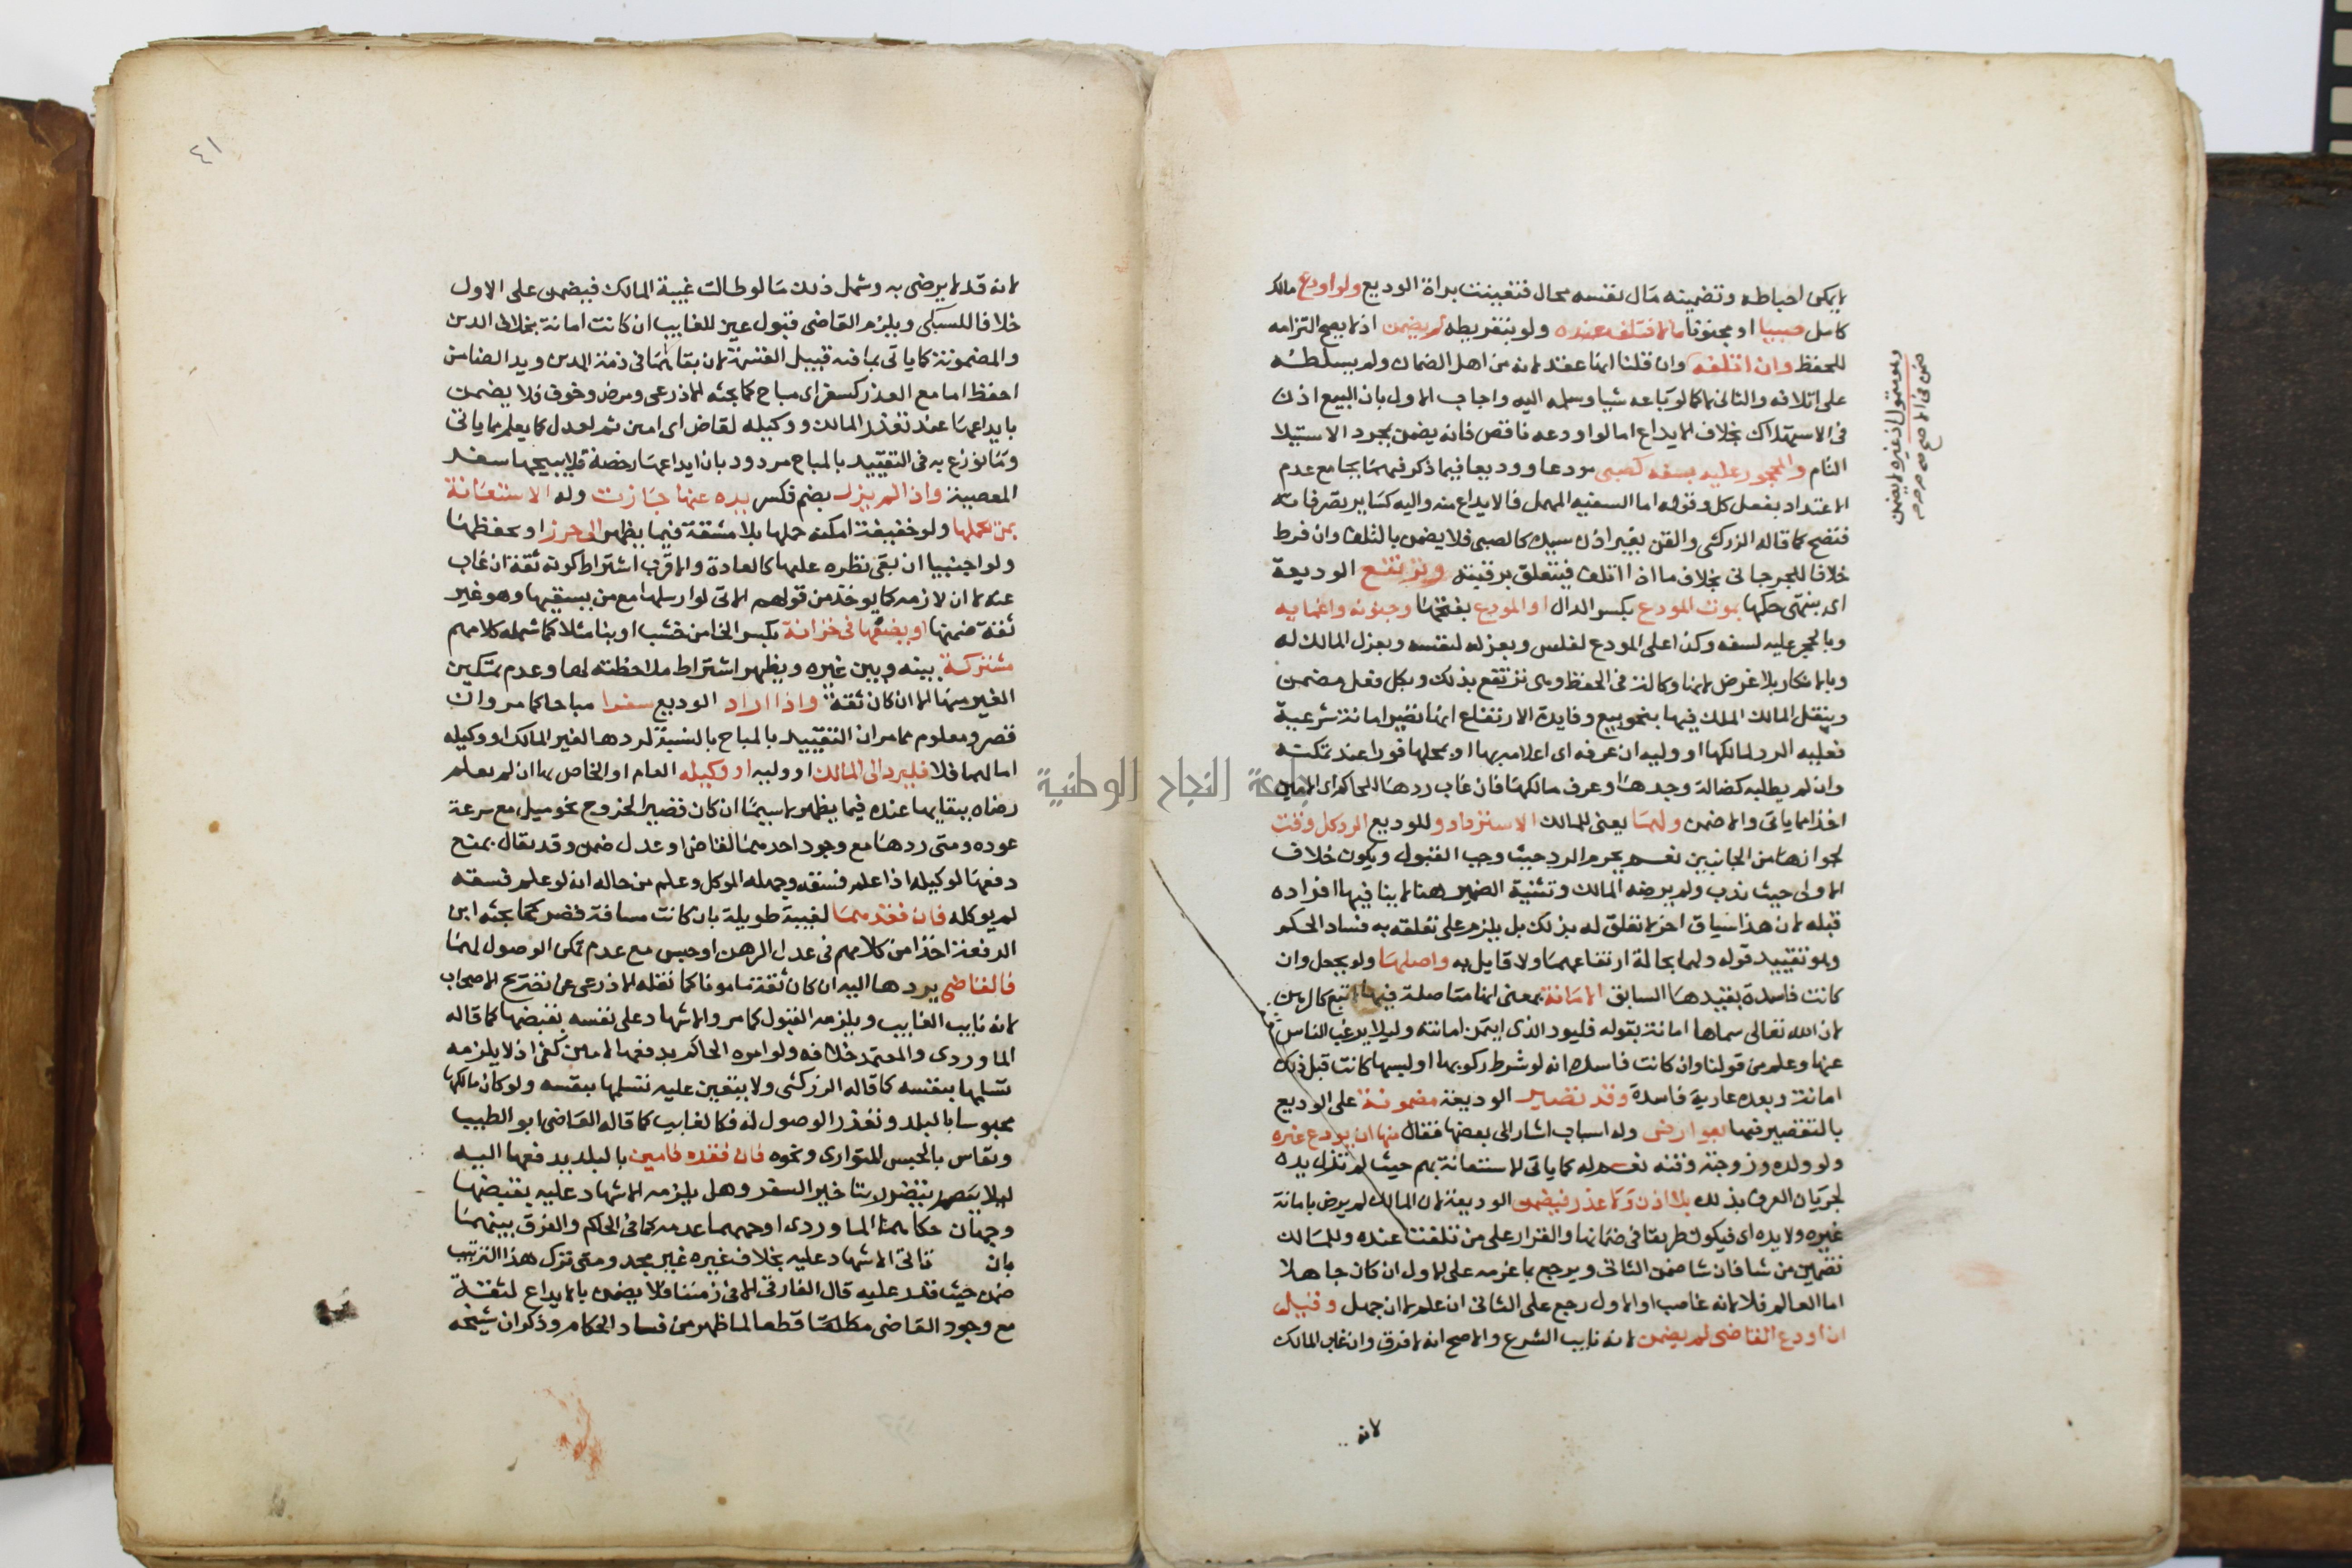 لايمكن احباطه وتضمينه مال نفسه محال فتعينت براة الوديع ولو اودع مالك
كامل صبيا او مجنونا مالا فتلف عنده ولو بتفريطه لم يضمن اذ لا يصح التزامه
للحفظ وان اتلفه وان قلنا انها عقد لانه من اهل الضمان ولم يسلطه
على اتلافه والثاني لا كما لو باعه شيا وسلمه اليه واجاب الاول بان البيع اذن
في الاستهلاك بخلاف الايداع اما لو اودعه ناقص فانه يضمن بمجرد الاستيلا
التام والمحجور عليه بسفه كصبي مودعا ووديعا فيما ذكر فيهما بجامع عدم
الاعتداد بفعل كل وقوله اما السفيه المهمل فالايداع منه واليه كساير تصرفاته
فتصح كما قاله الزركشي والقن بغير اذن سيده كالصبي فلا يضمن بالتلف وان فرط
خلافا للجرجاني بخلاف ما اذا اتلف فيتعلق برقبته وترتفع الوديعة
اي ينتهي حكمها بموت المودع بكسر الدال او المودع بفتحها وجنونه واغمايه
وبالحجر عليه لسفه وكذا على المودع لفلس وبعزله لنفسه وبعزل المالك له
وبالانكار بلا غرض لانها وكالة في الحفظ وهي ترتفع بذلك وبكل فعل مضمن
وبنقل المالك الملك فيها بنحو بيع وفايدة الارتفاع انها تصير امانة شرعية
فعليه الرد لمالكها او وليه ان عرفه اي اعلامه بها او بمحلها فورا عند تمكنه
وان لم يطلبه كضالة وجدها وعرف مالكها فان غاب ردها للحاكم اي الامين
اخذا مما ياتي والا ضمن ولهما يعني للمالك الاسترداد وللوديع الرد كل وقت
لجوازها من الجانبين نعم يحرم الرد حيث وجب القبول ويكون خلاف
الاولى حيث ندب ولم يرضه المالك وتثنية الضمير هنا لا ينافيها افراده
قبله لان هذا سياق اخر لا تعلق له بذلك بل يلزم على تعلقه به فساد الحكم
وهو تقييد قوله ولهما بحالة ارتفاعهما ولا قايل به واصلها ولو بجعل وان
كانت فاسدة بقيدها السابق الامانة بمعنى انها متاصلة فيها لا تبع كالرهن
لان الله تعالى سماها امانة بقوله فليود الذي ايتمن امانته وليلا يرغب الناس
عنها وعلم من قولنا وان كانت فاسدة انه لو شرط ركوبها او لبسها كانت قبل ذلك
امانة وبعده عارية فاسدة وقد تصير الوديعة مضمونة على الوديع
بالتقصير فيها بعوارض وله اسباب اشار الى بعضها فقال منها ان يودع غيره
ولو ولده وزوجته وقنه نعم له كما ياتي الاستعانة بهم حيث لم تزل يده
لجريان العرف بذلك بلا اذن ولا عذر فيضمن الوديعة لان المالك لم يرض بامانة
غيره ولا يده اي فيكون طريقا في ضمانها والقرار على من تلفت عنده وللمالك
تضمين من شا فان شا ضمن الثاني ويرجع بما غرمه على الاول ان كان جاهلا
اما العالم فلا لانه غاصب او الاول رجع على الثاني ان علم لا ان جهل وقيل
ان اودع القاضي لم يضمن لانه نايب الشرع والاصح انه لا فرق وان غاب المالك
لانه
وهو متول اذ غيره لا يضمن
ضمن في الاصح
٤١
لانه قد لا يرضى به وشمل ذلك ما لو طالت غيبة المالك فيضمن على الاول
خلافا للسبكي ويلزم القاضي قبول عين للغايب ان كانت امانة بخلاف الدين
والمضمونة كما ياتي بما فيه قبيل القسمة لان بقاهما في ذمة المدين ويد الضامن
احفظ اما مع العذر كسفر اي مباح كما بحثه الاذرعي ومرض وخوف فلا يضمن
بايداعها عند تعذر المالك ووكيله لقاض اي امين ثم لعدل كما يعلم مما ياتي
وما نوزع به في التقييد بالمباح مردود بان ايداعها رخصة فلا يبيحها سفر
المعصية واذا لم يزل بضم فكسر يده عنها جازت وله الاستعانة
بمن يحملها ولو خفيفة امكنه حملها بلا مشقة فيما يظهر الى حرز او يحفظها
ولو اجنبيا ان بقي نظره عليها كالعادة والاقرب اشتراط كونه ثقة ان غاب
عنه لا ان لازمه كما يوخذ من قولهم الاتي لو ارسلها مع من يسقيها وهو غير
ثقة ضمنها او يضعها في خزانة بكسر الخا من خشب او بنا مثلا كما شمله كلامهم
مشتركة بينه وبين غيره ويظهر اشتراط ملاحظته لها وعدم تمكين
الغير منها الا ان كان ثقة واذا اراد الوديع سفرا مباحا كما مر وان
قصر ومعلوم مما مر ان التقييد بالمباح بالنسبة لردها لغير المالك او وكيله
اما لهما فلا فليرد الى المالك او وليه او وكيله العام او الخاص بها ان لم يعلم
رضاه ببقايها عنده فيما يظهر لا سيما ان كان قصير الخروج نحو ميل مع سرعة
عوده ومتى ردها مع وجود احدهما لقاض او عدل ضمن وقد يقال بمنع
دفعها لوكيله اذا علم فسقه وجهله الموكل وعلم من حاله انه لو علم فسقه
لم يوكله فان فقدهما لغيبة طويلة بان كانت مسافة قصر كما بحثه ابن
الرفعة اخذا من كلامهم في عدل الرهن او حبس مع عدم تمكن الوصول لهما
فالقاضي يردها اليه ان كان ثقة مامونا كما نقله الاذرعي عن تصريح الاصحاب
لانه نايب الغايب ويلزمه القبول كما مر والاشهاد على نفسه بقبضها كما قاله
الماوردي والمعتمد خلافه ولو امره الحاكم بدفعها لامين كفى اذ لا يلزمه
تسلمها بنفسه كما قاله الزركشي ولا يتعين عليه تسلمها بنفسه ولو كان مالكها
محبوسا بالبلد وتعذر الوصول له فكالغايب كما قاله القاضي ابو الطيب
ويقاس بالحبس المتواري ونحوه فان فقده فامين بالبلد يدفعها اليه
ليلا يتضرر بتاخير السفر وهل يلزمه الاشهاد عليه بقبضها
وجهان حكاهما الماوردي اوجههما عدمه كما في الحاكم والفرق بينهما
بان تاتي الاشهاد عليه بخلاف غيره غير مجد ومتى ترك هذا الترتيب
ضمن حيث قدر عليه قال الفارقي الا في زمننا فلا يضمن بالايداع لثقة
مع وجود القاضي مطلقا قطعا لما ظهر من فساد الحكام وذكر ان شيخه
جامعة النجاح الوطنية